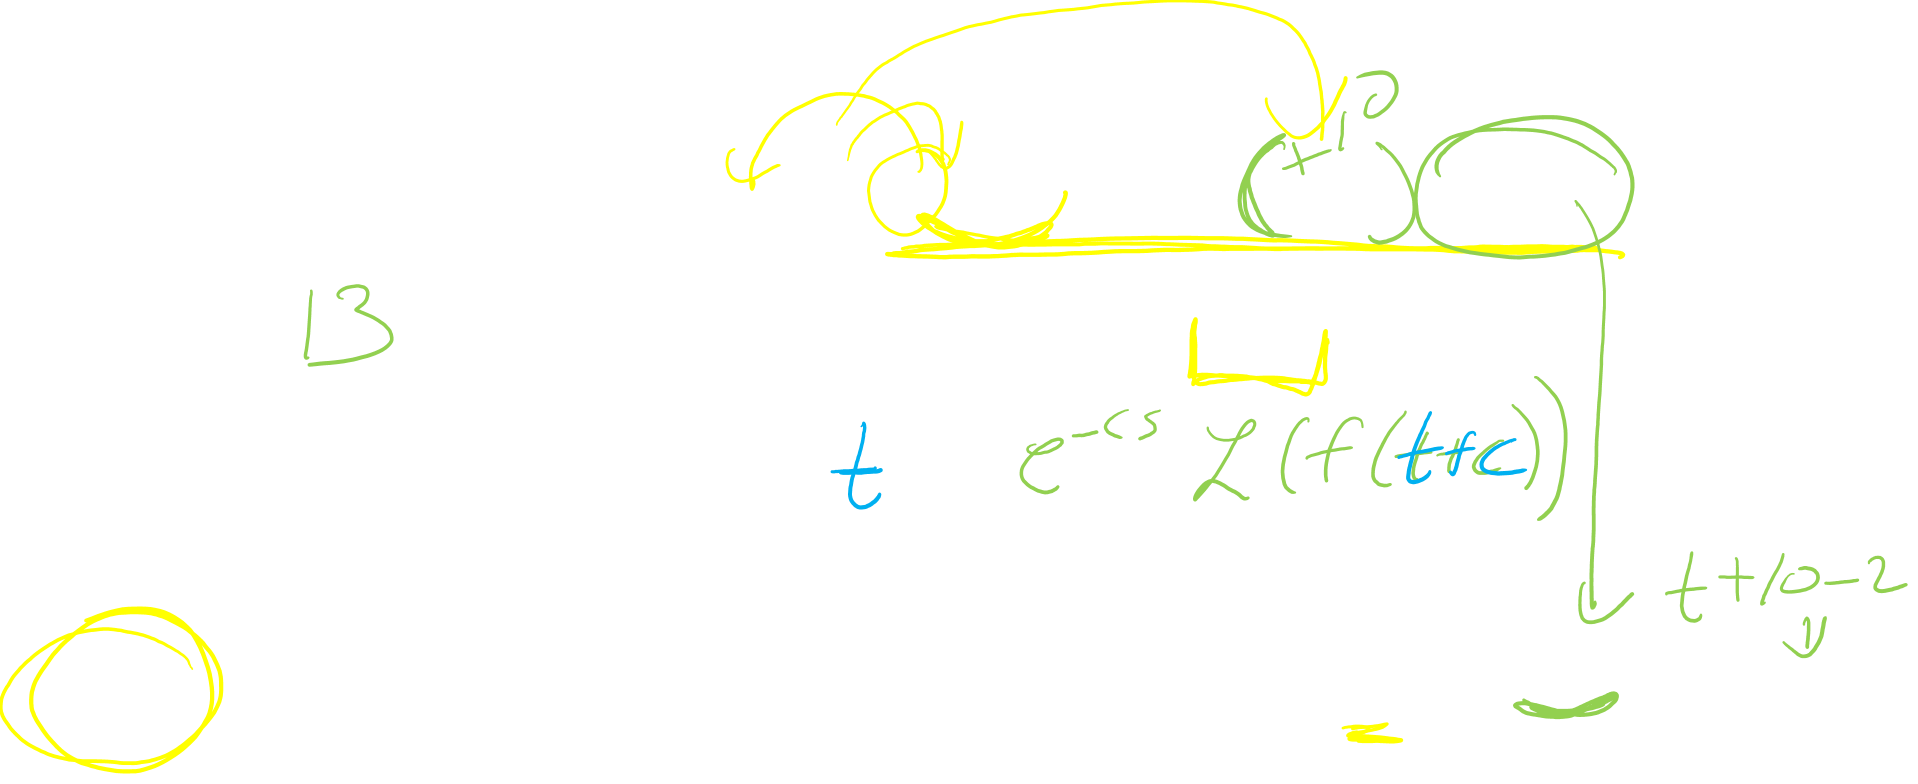 (+10)
B
t e^{-cs} ℒ(f(t+c))
t+10-2